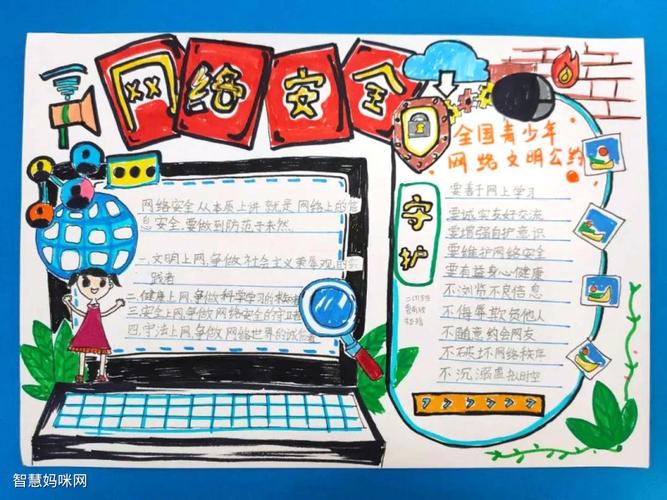 网络安全
网络安全从本质上讲就是网络上的信
息安全,要做到防范于未然
一、文明上网,争做社会主义荣辱观的实
践者
二、健康上网,争做科学学习的
三、安全上网,争做网络安全的守卫者
四、守法上网,争做网络世界的诚信者
守护
全国青少年
网络文明公约
要善于网上学习
要诚实友好交流
要增强自护意识
要维护网络安全
要有益身心健康
不浏览不良信息
不侮辱欺负他人
不随意约会网友
不破坏网络秩序
不沉溺虚拟时空
智慧妈咪网